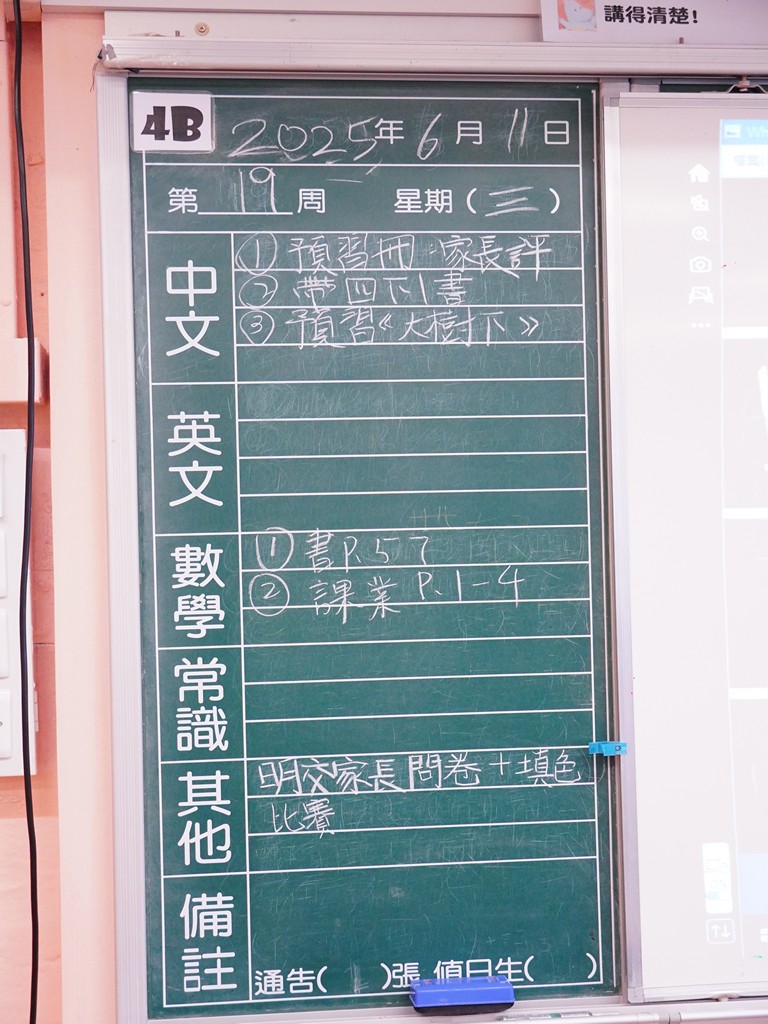 講得清楚!
4B 2025年6月11日
第19周 星期(三)
中文
① 預習冊:家長評
② 帶四下1書
③ 預習《大樹下》
英文
數學
① 書P.57
② 課業P.1-4
常識
其他
明交家長問卷+填色
比賽
備註
通告( )張 值日生( )